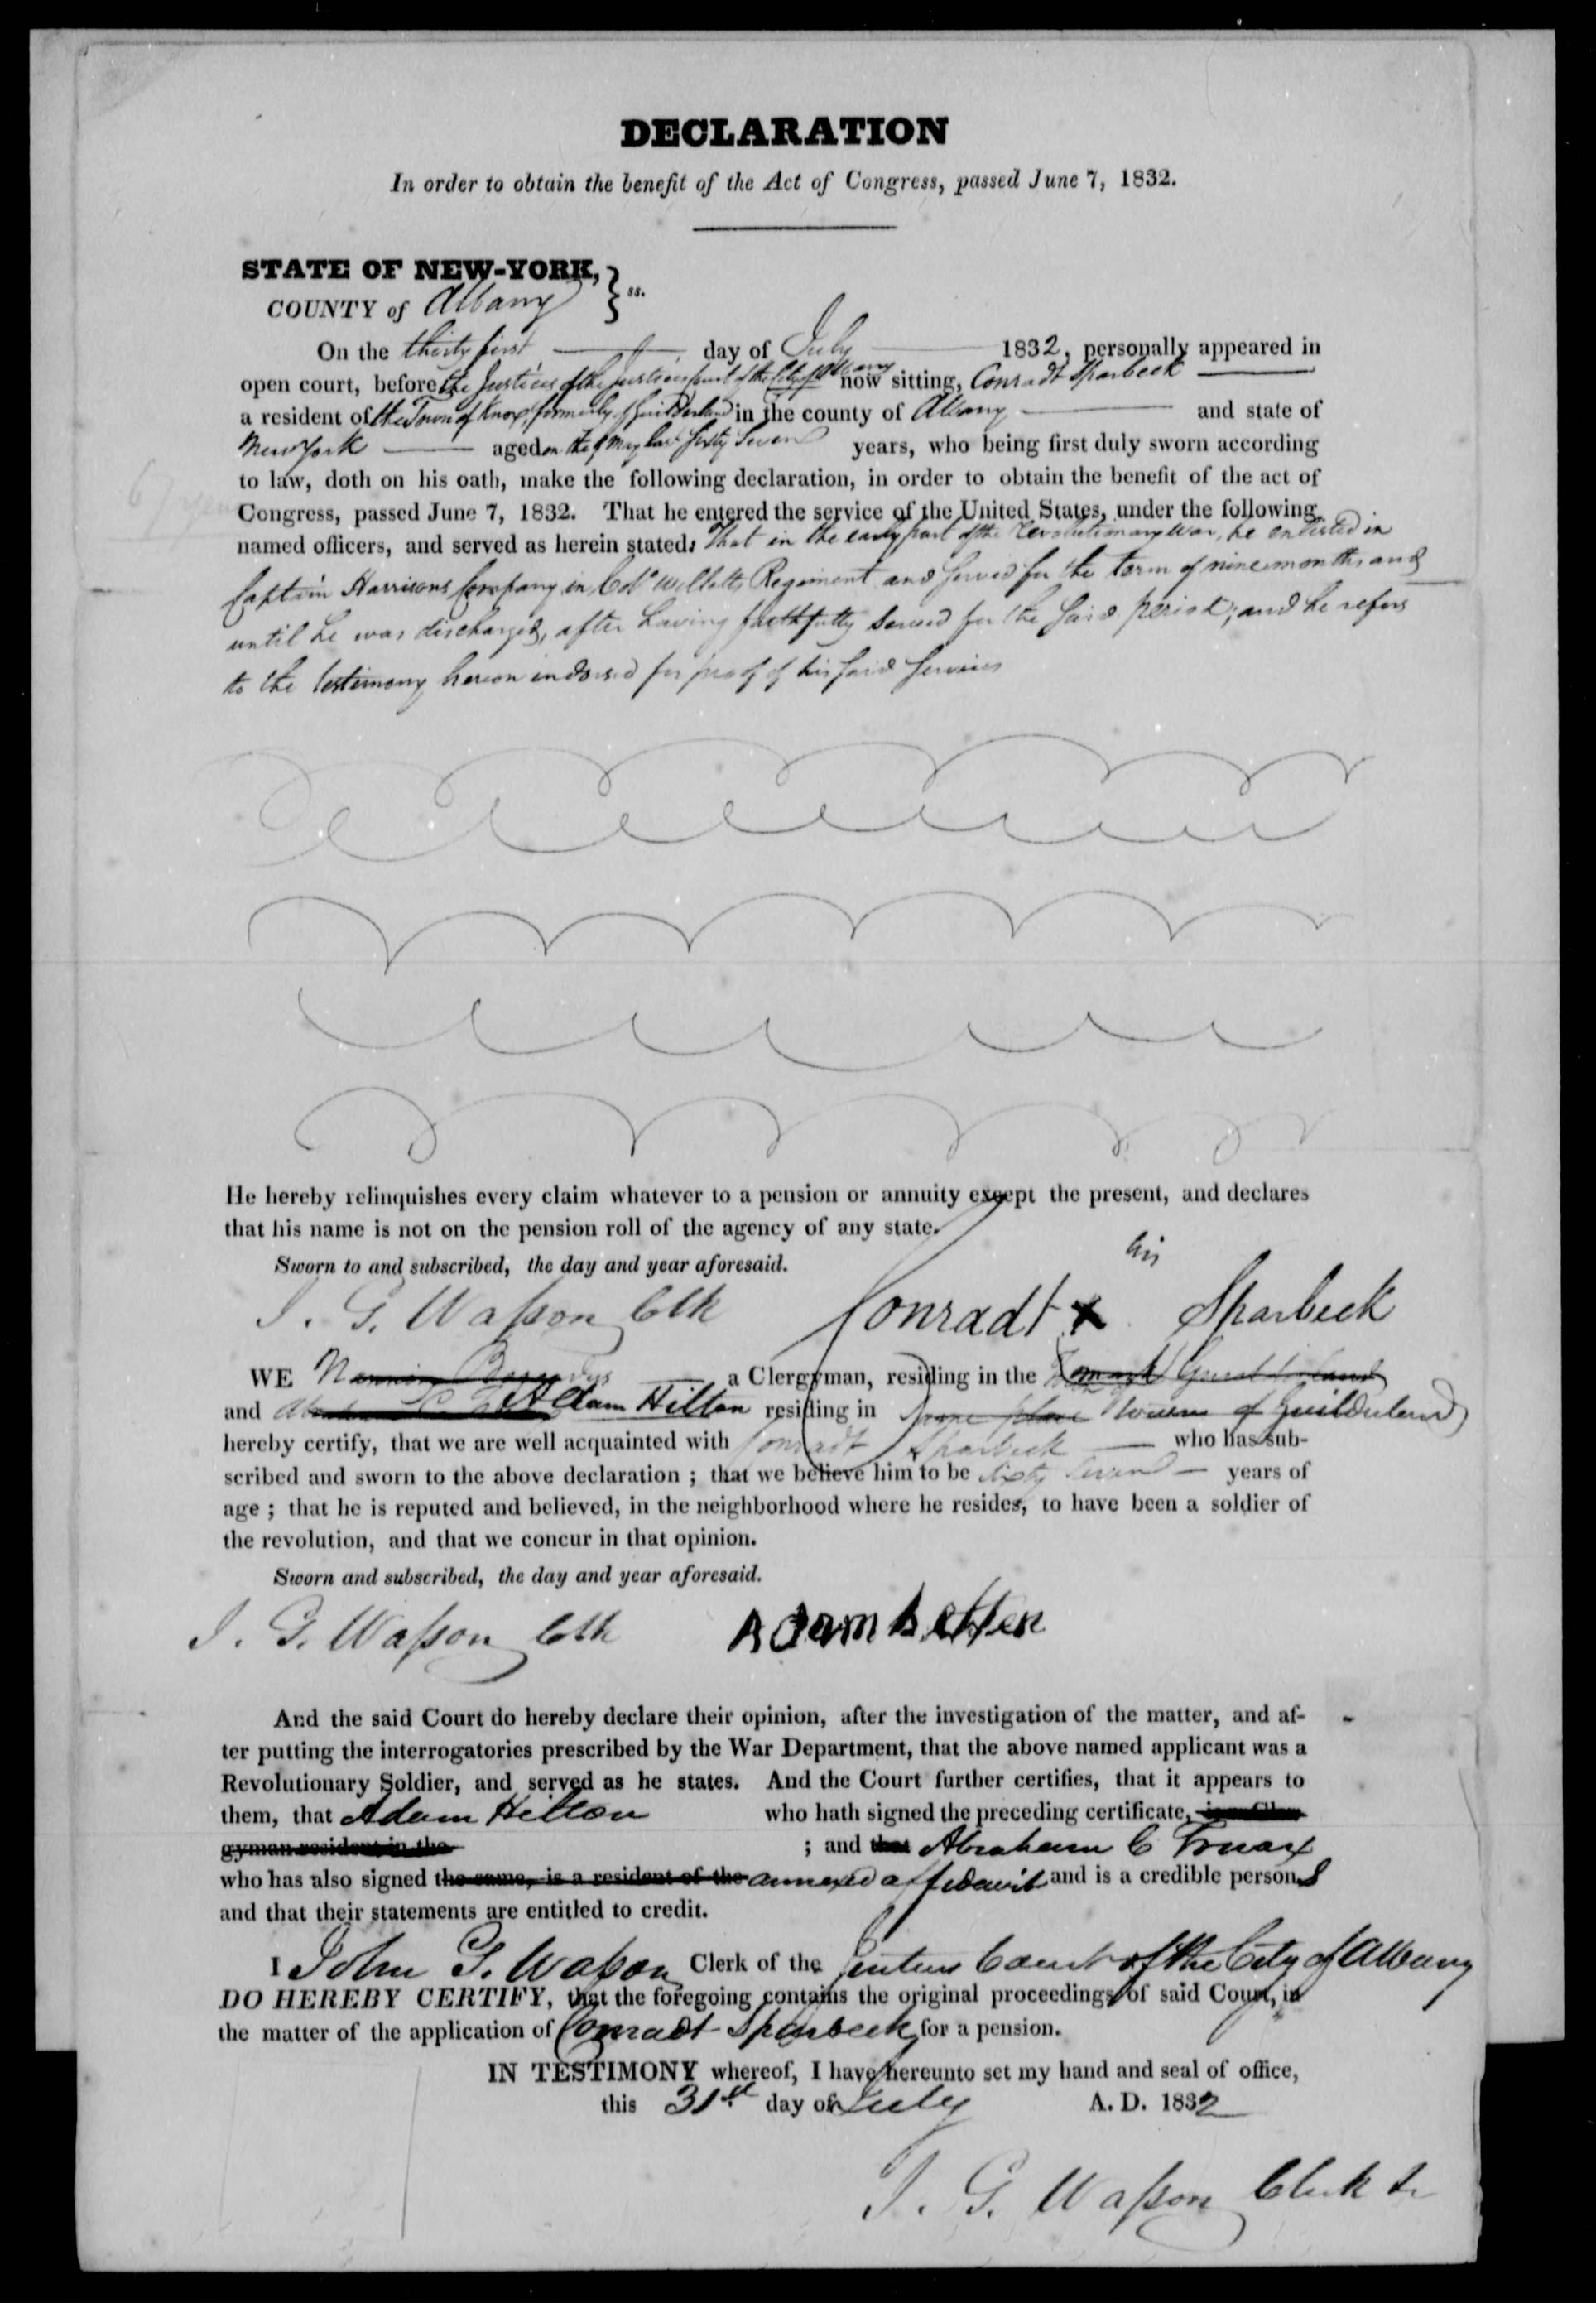 DECLARATION
In order to obtain the benefit of the Act of Congress, passed June 7, 1832.
STATE OF NEW-YORK,
COUNTY of Albany } ss.
On the thirty first day of July 1832, personally appeared in
open court, before the Justices of the Justices Court of the City of Albany now sitting, Conradt Sparbeck
a resident of the Town of Knox, formerly of Guilderland in the county of Albany and state of
New York aged on the 9 May last sixty seven years, who being first duly sworn according
to law, doth on his oath, make the following declaration, in order to obtain the benefit of the act of
Congress, passed June 7, 1832. That he entered the service of the United States, under the following
named officers, and served as herein stated. That in the early part of the Revolutionary War, he enlisted in
Captain Harrisons Company in Col Willetts Regiment and served for the term of nine months and
until he was discharged, after having faithfully served for the said period; and he refers
to the testimony hereon indorsed for proof of his said services
He hereby relinquishes every claim whatever to a pension or annuity except the present, and declares
that his name is not on the pension roll of the agency of any state.
Sworn to and subscribed, the day and year aforesaid.
his
J. G. Waſson Clk Conradt x Sparbeck
WE a Clergyman, residing in the
and Adam Hilton residing in Town of Guilderland
hereby certify, that we are well acquainted with Conradt Sparbeck who has sub-
scribed and sworn to the above declaration ; that we believe him to be sixty seven years of
age ; that he is reputed and believed, in the neighborhood where he resides, to have been a soldier of
the revolution, and that we concur in that opinion.
Sworn and subscribed, the day and year aforesaid.
J. G. Waſson Clk Adam
And the said Court do hereby declare their opinion, after the investigation of the matter, and af-
ter putting the interrogatories prescribed by the War Department, that the above named applicant was a
Revolutionary Soldier, and served as he states. And the Court further certifies, that it appears to
them, that Adam Hilton who hath signed the preceding certificate, is a Cler-
gyman resident in the ; and that Abraham C Truax
who has also signed the same, is a resident of the annexed affidavit and is a credible persons
and that their statements are entitled to credit.
I John G. Waſson Clerk of the Justices Court of the City of Albany
DO HEREBY CERTIFY, that the foregoing contains the original proceedings of said Court, in
the matter of the application of Conradt Sparbeck for a pension.
IN TESTIMONY whereof, I have hereunto set my hand and seal of office,
this 31st day of July A. D. 1832
J. G. Waſson Clerk &c